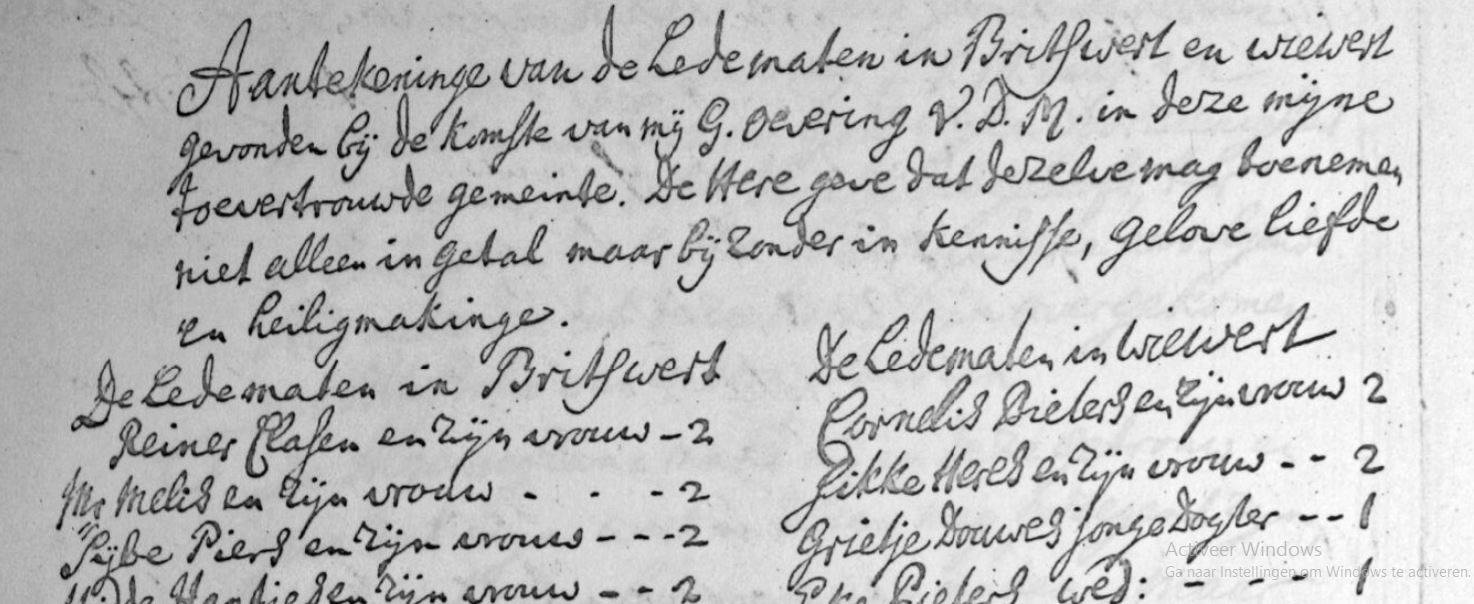 Aantekeninge van de Ledematen in Britswert en wiewert
gevonden bij de komste van mij G. Oevering V. D. M. in deze mijne
toevertrouwde gemeinte. De Here geve dat dezelve mag toenemen
niet alleen in getal maar bijzonder in kennisse, gelove liefde
en heiligmakinge.
De Ledematen in Britswert
Reiner Clasen en zijn vrouw - 2
Mr Melis en zijn vrouw - - - 2
Sijbe Piers en zijn vrouw - - - 2
en zijn vrouw - - 2
De Ledematen in wiewert
Cornelis Pieters en zijn vrouw 2
Fikke Heres en zijn vrouw - - 2
Grietje Douwes jonge Dogter - - 1
Pieters wed: - - - 1
Activeer Windows
Ga naar Instellingen om Windows te activeren.